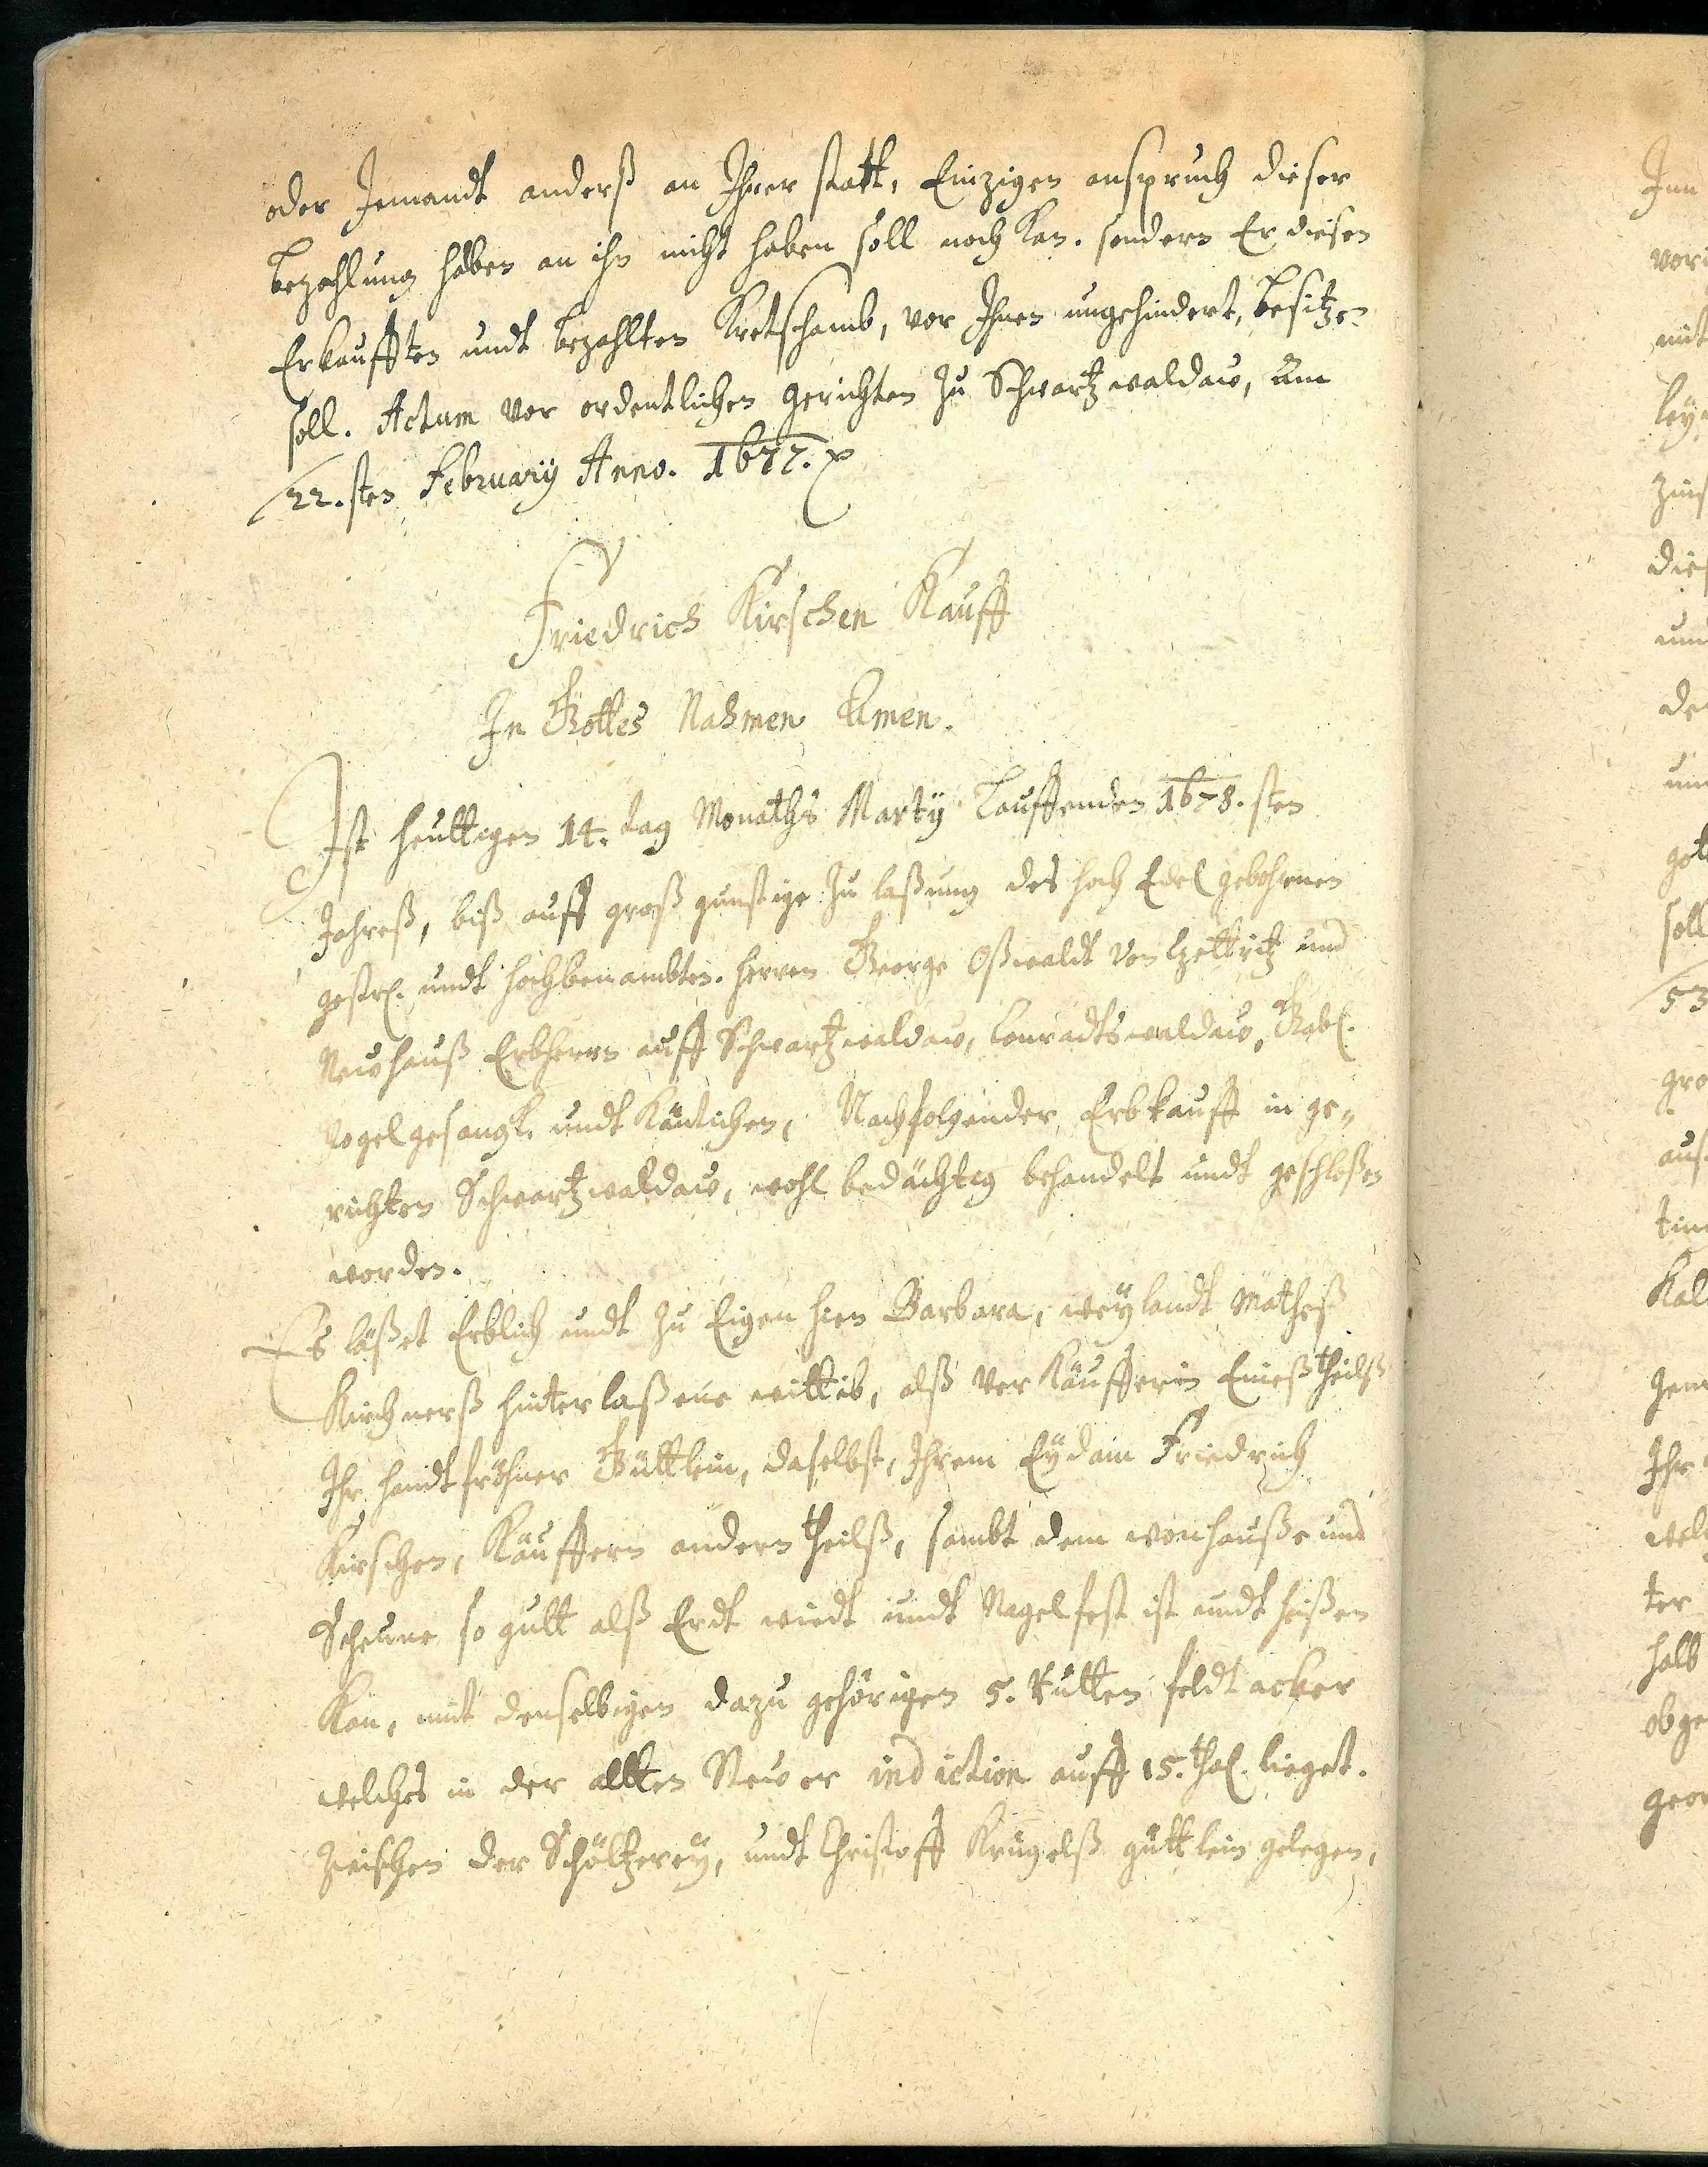 oder Jemandt anderß an Ihrer statt, Einzigen anspruch dieser
bezahlung haben an ihn nicht haben soll noch kan. sondern Er diesen
Erkaufften undt bezahlten Kretschamb, vor Ihnen ungehindert, besitzen
soll. Actum vor ordentlichen gerichten zu Schwartzwaldaw, Am
22.sten February Anno. 1677.
Friedrich Kirschen Kauff
In Gottes Nahmen Amen.
Ist heuttigen 14. tag Monaths Marty Lauffenden 1678.sten
Jahreß, biß auff groß günstige zu laßung des hoch Edel gebohrnen
gestr. undt hochbenambten. herren George Oßwaldt von Czettritz und
Newhauß Erbherrn auff Schwartzwaldaw, Conradtswaldaw, Gabl.
Vogelgesangk. undt Käutichen, Nachfolgender Erbkauff in ge-
richten Schwartzwaldaw, wohl bedächtig behandelt undt geschloßen
worden.
Es läßet Erblich undt zu Eigen hien Barbara, weylandt Matheß
Kirchnerß hinterlaßene wittib, alß Verkäufferin Eineß theilß
Ihr handtfröhner Güttlein, daselbst, Ihrem Eydam Friedrich
Kirschen, Käuffern andern theilß, sambt dem wonhauße und
Scheune so gutt alß Erdt wiedt undt Nagelfest ist undt heißen
kan, mit denselbigen dazu gehörigen 5. Rutten feldt acker
welches in der allten Stewer indiction auff 15. thal. lieget.
zwischen der Schöltzerey, undt Christoff Krügelß güttlein gelegen,
Jun
vor
mit
ley
zins
dies
und
de
und
got
soll
53
gro
aus
tim
Kal
Ihr
wel
ter
halb
obge
geor